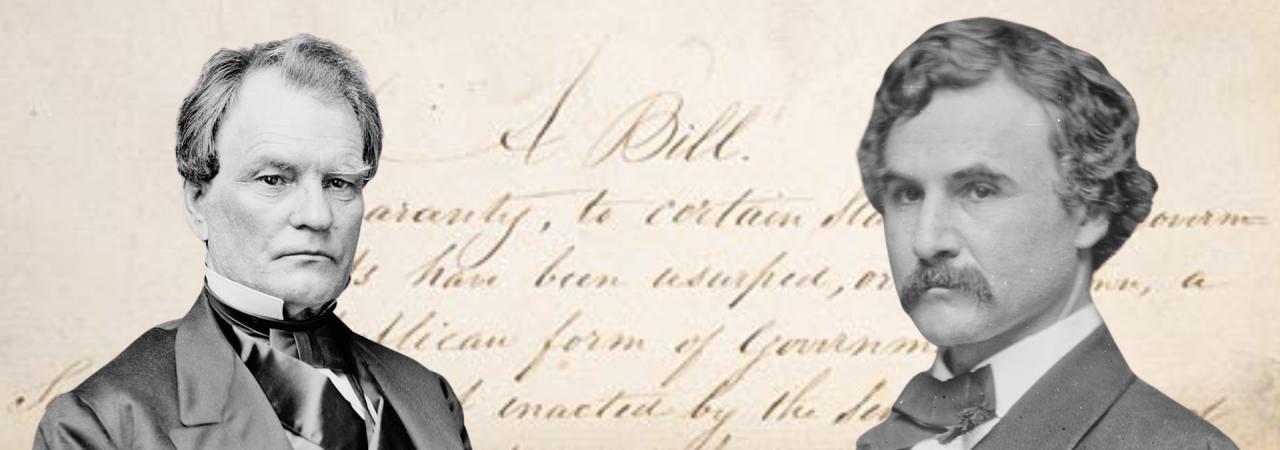 A Bill.
aranty, to certain Sta Govern=
ts have been usurped, or wn, a
blican form of Governm
S t enacted by the Sen t